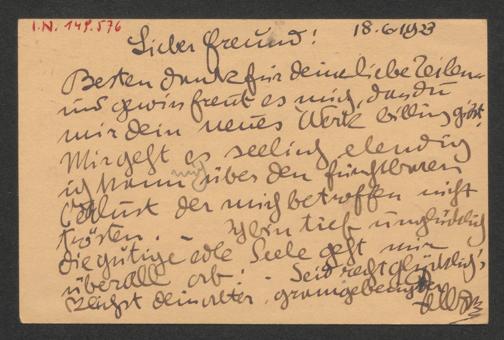 I.N. 149.576
18.6.1923
Lieber Freund!
Besten Dank für deine liebe Zeilen
und gewiss freut es mich, dass du
mir dein neues Werk billig gibst.
Mir geht es seelisch elendig
ich kann mich über den furchtbaren
Verlust der mich betroffen nicht
trösten. – Ich bin tief unglücklich
die gütige edle Seele geht mir
überall ab! – Seid recht glücklich!
herzlichst dein alter, gramgebeugter